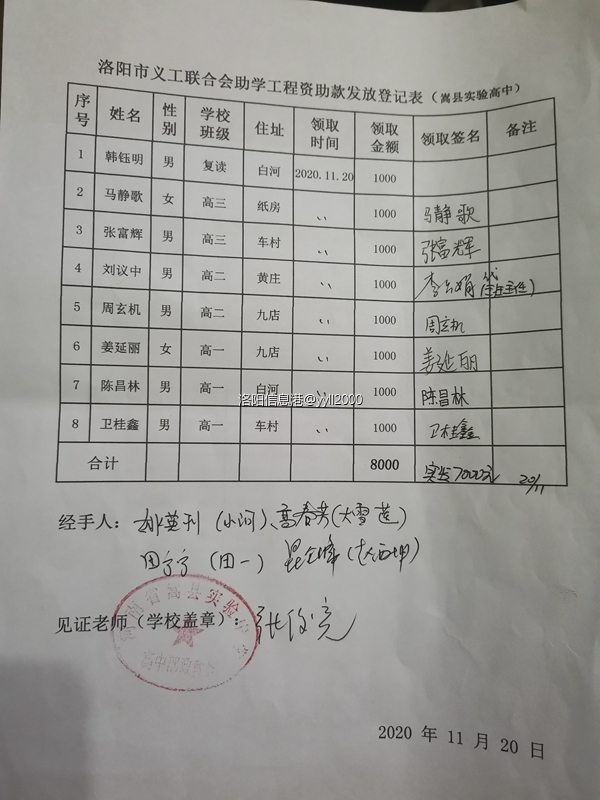 洛阳市义工联合会助学工程资助款发放登记表（嵩县实验高中）
序号 姓名 性别 学校班级 住址 领取时间 领取金额 领取签名 备注
1 韩钰明 男 复读 白河 2020.11.20 1000
2 马静歌 女 高三 纸房 〃 1000 马静歌
3 张富辉 男 高三 车村 〃 1000 张富辉
4 刘议中 男 高二 黄庄 〃 1000 代(班主任)
5 周玄机 男 高二 九店 〃 1000 周玄机
6 姜延丽 女 高一 九店 〃 1000 姜延丽
7 陈昌林 男 高一 白河 〃 1000 陈昌林
洛阳信息港@yyll2000
8 卫桂鑫 男 高一 车村 〃 1000 卫桂鑫
合计 8000 实发7000元 20/11
经手人：(小河)、高春芳(大雪莲)
田宁宁(田一)
见证老师（学校盖章）：张俊亮
河南省嵩县实验
2020 年 11 月 20 日